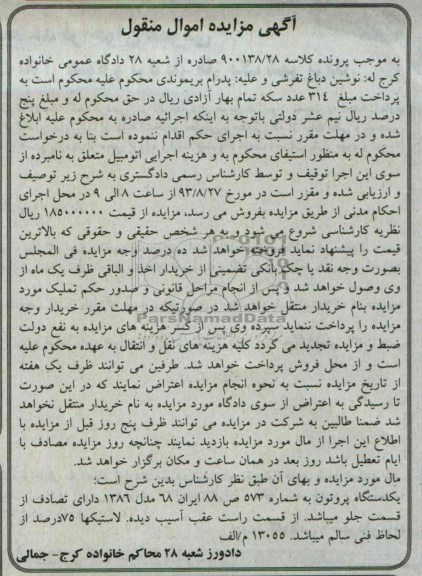 آگهی مزایده اموال منقول
به موجب پرونده کلاسه ۹۰۰۱۳۸/۲۸ صادره از شعبه ۲۸ دادگاه عمومی خانواده
کرج له: نوشین دباغ تفرشی و علیه: پدرام بریموندی محکوم علیه محکوم است به
پرداخت مبلغ ۳۱۴ عدد سکه تمام بهار آزادی ریال در حق محکوم له و مبلغ پنج
درصد ریال نیم عشر دولتی باتوجه به اینکه اجرائیه صادره به محکوم علیه ابلاغ
شده و در مهلت مقرر نسبت به اجرای حکم اقدام ننموده است بنا به درخواست
محکوم له به منظور استیفای محکوم به و هزینه اجرایی اتومبیل متعلق به نامبرده از
سوی این اجرا توقیف و توسط کارشناس رسمی دادگستری به شرح زیر توصیف
و ارزیابی شده و مقرر است در مورخ ۹۳/۸/۲۷ از ساعت ۸ الی ۹ در محل اجرای
احکام مدنی از طریق مزایده بفروش می رسد، مزایده از قیمت ۱۸۵۰۰۰۰۰۰ ریال
نظریه کارشناسی شروع می شود و به هر شخص حقیقی و حقوقی که بالاترین
قیمت را پیشنهاد نماید فروخته خواهد شد ده درصد وجه مزایده فی المجلس
بصورت وجه نقد یا چک بانکی تضمینی از خریدار اخذ و الباقی ظرف یک ماه از
وی وصول خواهد شد و پس از انجام مراحل قانونی و صدور حکم تملیک مورد
مزایده بنام خریدار منتقل خواهد شد در صورتیکه در مهلت مقرر خریدار وجه
مزایده را پرداخت ننماید سپرده وی پس از کسر هزینه های مزایده به نفع دولت
ضبط و مزایده تجدید می گردد کلیه هزینه های نقل و انتقال به عهده محکوم علیه
است و از محل فروش پرداخت خواهد شد. طرفین می توانند ظرف یک هفته
از تاریخ مزایده نسبت به نحوه انجام مزایده اعتراض نمایند که در این صورت
تا رسیدگی به اعتراض از سوی دادگاه مورد مزایده به نام خریدار منتقل نخواهد
شد ضمنا طالبین به شرکت در مزایده می توانند ظرف پنج روز قبل از مزایده با
اطلاع این اجرا از مال مورد مزایده بازدید نمایند چنانچه روز مزایده مصادف با
ایام تعطیل باشد روز بعد در همان ساعت و مکان برگزار خواهد شد.
مال مورد مزایده و بهای آن طبق نظر کارشناس بدین شرح است:
یکدستگاه پروتون به شماره ۵۷۳ ص ۸۸ ایران ۶۸ مدل ۱۳۸۶ دارای تصادف از
قسمت جلو میباشد. از قسمت راست عقب آسیب دیده. لاستیکها ۷۵درصد از
لحاظ فنی سالم میباشد. ۱۳۰۵۵ م/الف
دادورز شعبه ۲۸ محاکم خانواده کرج- جمالی
ParsNamadData